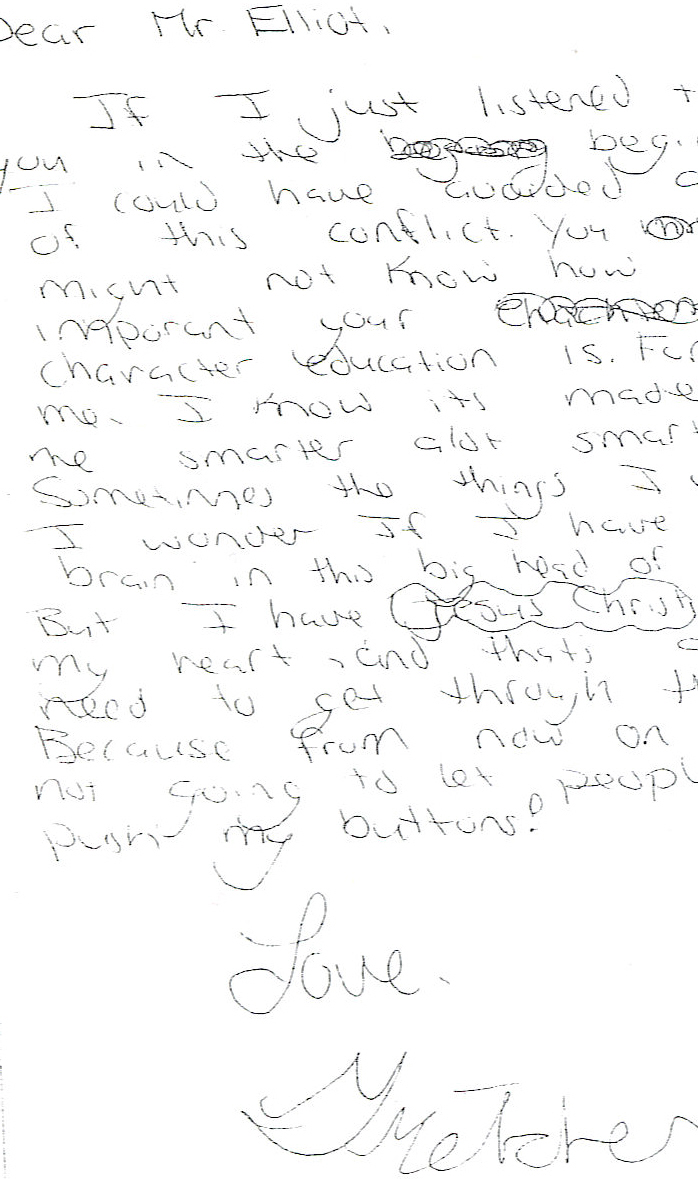 Dear Mr. Elliot,
If I just listened t
you in the begi
I could have avoided
of this conflict. You
might not know how
imporant your
character education is. For
me. I know its made
me smarter alot smart
Sometimes the things I
I wonder If I have
brain in this big head of
But I have Jesus Christ
my heart, and thats
need to get through th
Because from now on
not going to let peopl
push my buttons!
Love.
Gretchen